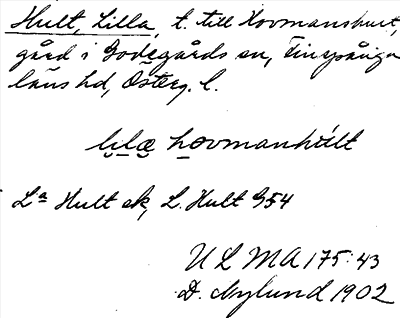 Hult, Lilla, t. till Hovmanshult,
gård i Godegårds sn, Finspånga
läns hd, Österg. l.
lilæ hovmanhult
La Hult ek, L. Hult G54
ULMA 175:43
D. Nylund 1902